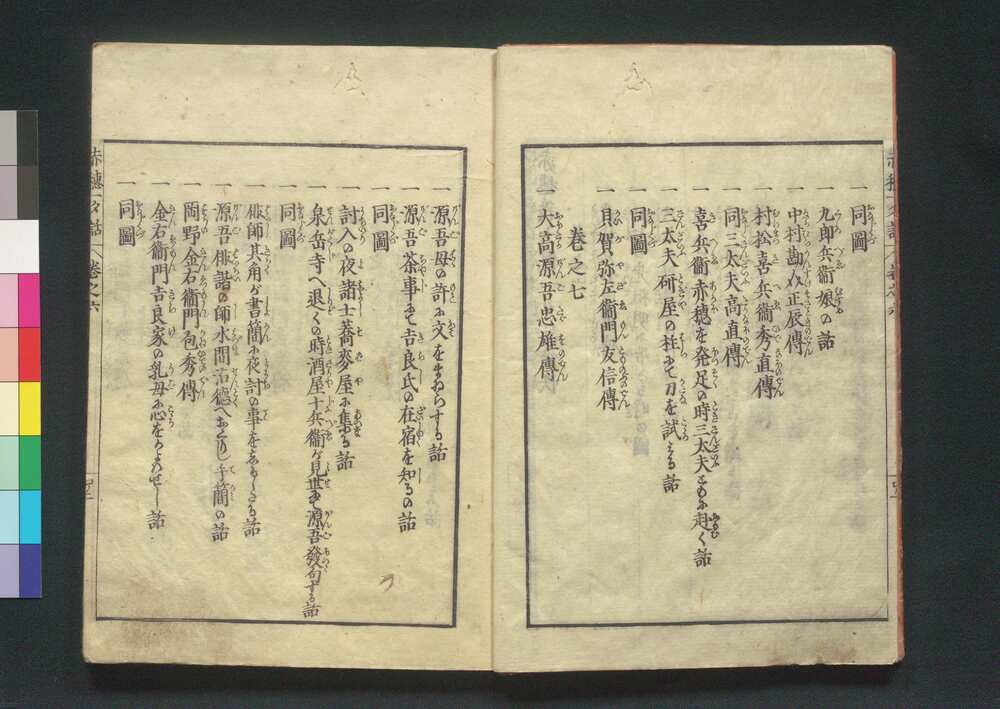 一 同圖
一 九郎兵衞娘の話
一 中村勘助正辰傳
一 村松喜兵衞秀直傳
一 同三太夫高直傳
一 喜兵衞赤穂を発足の時三太夫ともに赴く話
一 三太夫研屋の柱にて刀を試みる話
一 同圖
一 貝賀弥左衞門友信傳
卷之七
一 大高源吾忠雄傳
一 源吾母の許に文をまゐらする話
一 源吾茶事にて吉良氏の在宿を知るの話
一 同圖
一 討入の夜諸士蕎麥屋に集る話
一 泉岳寺へ退くの時酒屋十兵衞が見世にて源吾發句する話
一 同圖
一 俳師其角が書簡に夜討の事をしるしたる話
一 源吾俳諧の師水間沾德へおくりし手簡の話
一 岡野金右衞門包秀傳
一 金右衞門吉良家の乳母に心をかよはせし話
一 同圖
赤穗一夕話 卷之六